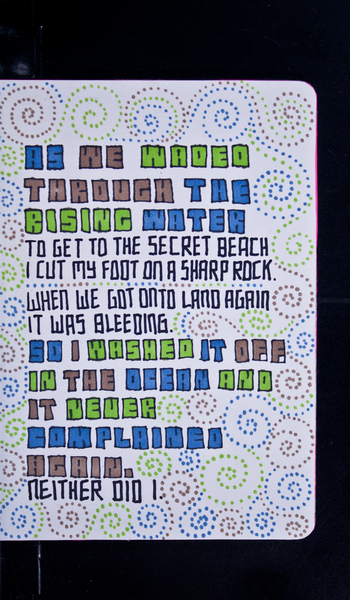 AS WE WADED
THROUGH THE
RISING WATER
TO GET TO THE SECRET BEACH
I CUT MY FOOT ON A SHARP ROCK.
WHEN WE GOT ONTO LAND AGAIN
IT WAS BLEEDING.
SO I WASHED IT OFF
IN THE OCEAN AND
IT NEVER
COMPLAINED
AGAIN.
NEITHER DID I.